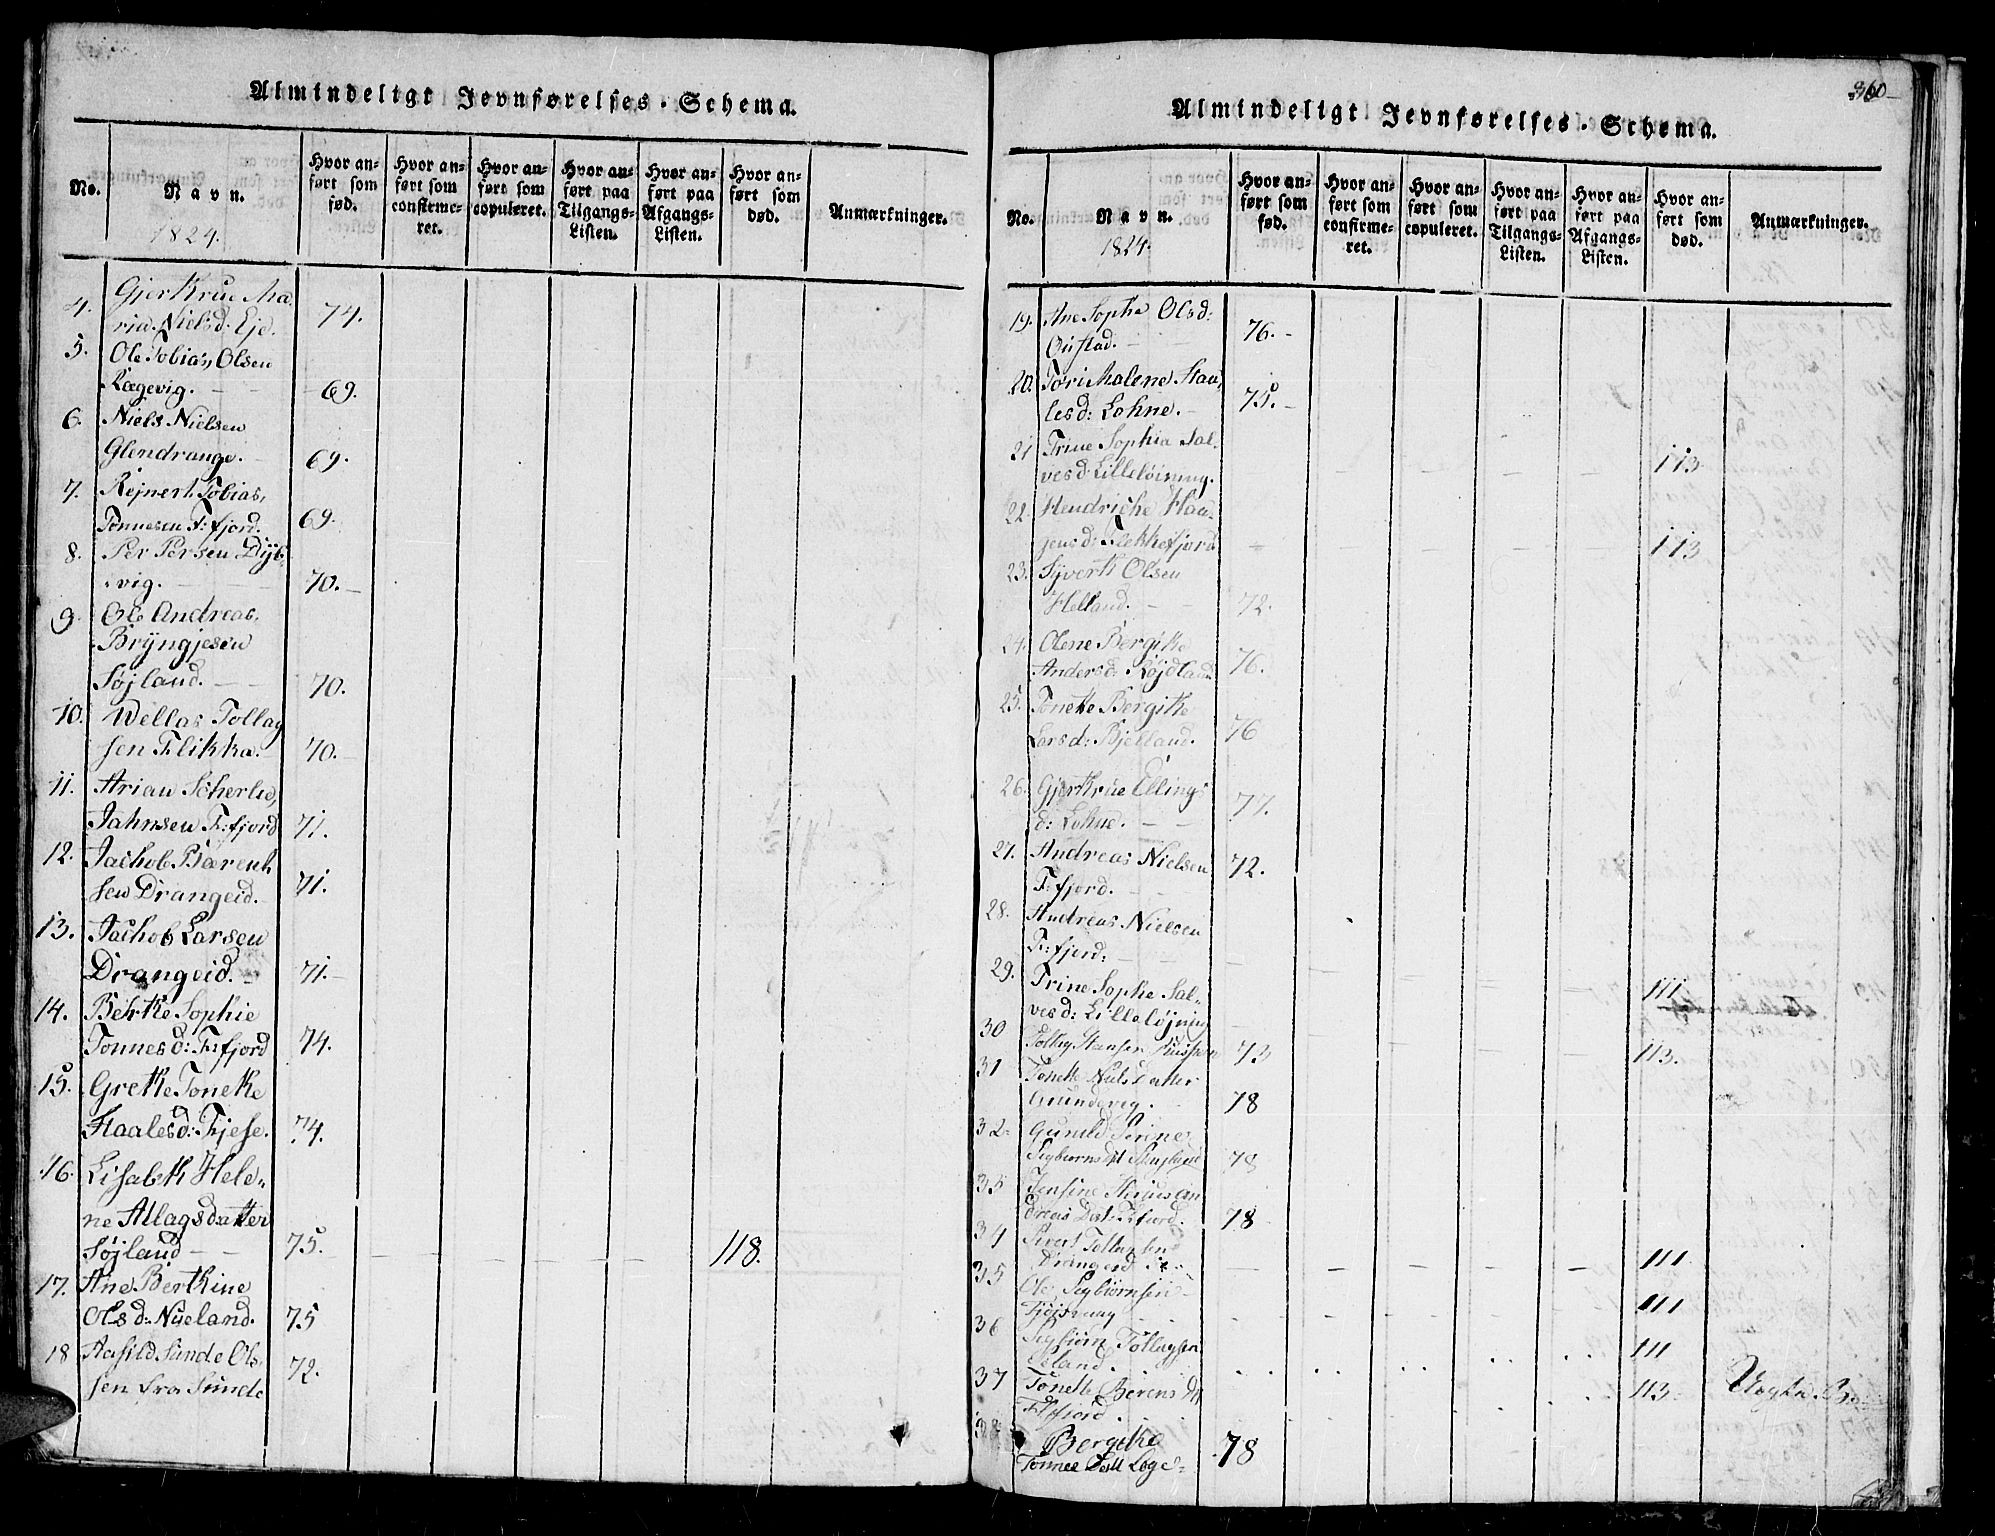 Almindeligt Jevnførelses-Schema.
No.
Navn.
1824.
Hvor anført som fød.
Hvor anført som confirmeret.
Hvor anført som copuleret.
Hvor anført paa Tilgangs-Listen.
Hvor anført paa Afgangs-Listen.
Hvor anført som død.
Anmærkninger.
4. Gjertrue Ma-
ria Nielsd. Eje. 74.
5. Ole Tobias, Olsen
Rægevig. 69.
6. Niels Nielsen
Glendrange. 69.
7. Rejnert Tobias,
Tønnesen F:fjord. 69.
8. Per Persen Dyb-
vig. 70.
9. Ole Andreas,
Bryngjesen
Søjland. 70.
10. Wellas Tollag
sen Flikka. 70.
11. Arian Scherlie,
Jahnsen F:fjord 71.
12. Jachob Bærent
sen Drangeid. 71.
13. Jachob Larsen
Drangeid. 71.
14. Birtke Sophie
Tønnesd: F:fjord 74.
15. Gretke Tonetke
Staalesd: Fjese. 74.
16. Lisabetk Hele-
ne Atlagsdatter
Søjland 75. 118.
17. Ane Bertkine
Olsd: Nueland. 75
18 Aasild Sunde Ol-
sen fra Sunde 72.
Almindeligt Jevnførelses-Schema.
360
No.
Navn.
1824.
Hvor anført som fød.
Hvor anført som confirmeret.
Hvor anført som copuleret.
Hvor anført paa Tilgangs-Listen.
Hvor anført paa Afgangs-Listen.
Hvor anført som død.
Anmærkninger.
19. Ane Sophe Olsd:
Oustad. 76.
20. Tori Malene Staa-
lesd: Lohne. 75.
21 Trine Sophia Sal-
vesd: Lilleløining. 113
22. Hendriche Han-
sensd: Flekkefjord 113
23. Syvert Olsen
Helland. 72.
24. Olene Bergitke
Andersd: Løjdland 76.
25. Tonetke Bergitke
Larsd: Bjelland. 76
26. Gjertrue Ellings
d: Lohne. 77.
27. Andreas Nielsen
F:fjord. 72.
28. Andreas Nielsen
F:fjord: 111
29. Trine Sophe Sal-
vesd: Lilleløjning 113.
30 Tolleg Hansen 73
31 Tonette Niels Datter
Grundevig. 78
32 Gunild Serine
Sigbiørns Dt 78
33 Jensine An
dreas Dat: F:fjord. 78
34 Sivert Tollagsen
Drangeid 111
35 Ole Sigbiørnsen
111
36 Sigbiørn Tollagsen
Eeland. 111
37 Tonette Berens Dt
F:fjord 113
38 Bergitke
Tønnes Dat Loge 78